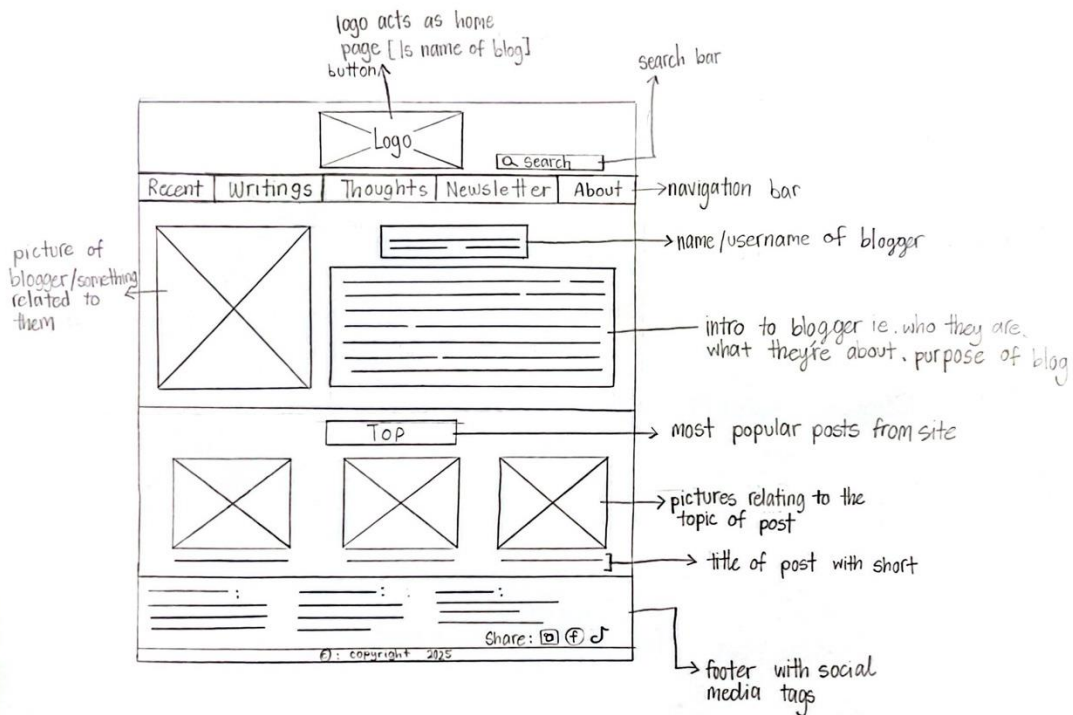 logo acts as home
page [Is name of blog]
button
search bar
Logo
search
Recent Writings Thoughts Newsletter About
navigation bar
name/username of blogger
picture of
blogger/something
related to
them
intro to blogger ie. who they are,
what they're about, purpose of blog
TOP
most popular posts from site
pictures relating to the
topic of post
title of post with short
: : :
Share:
: copyright 2025
footer with social
media tags